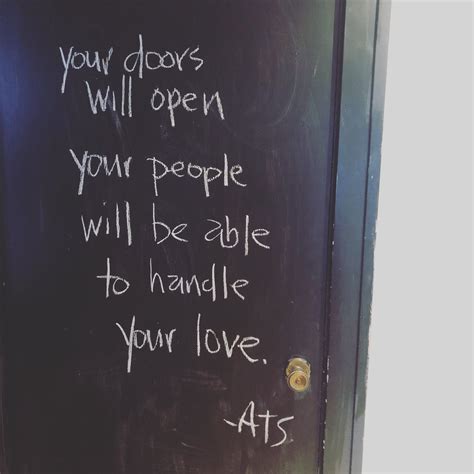 your doors
will open
your people
will be able
to handle
your love.
-ATS.